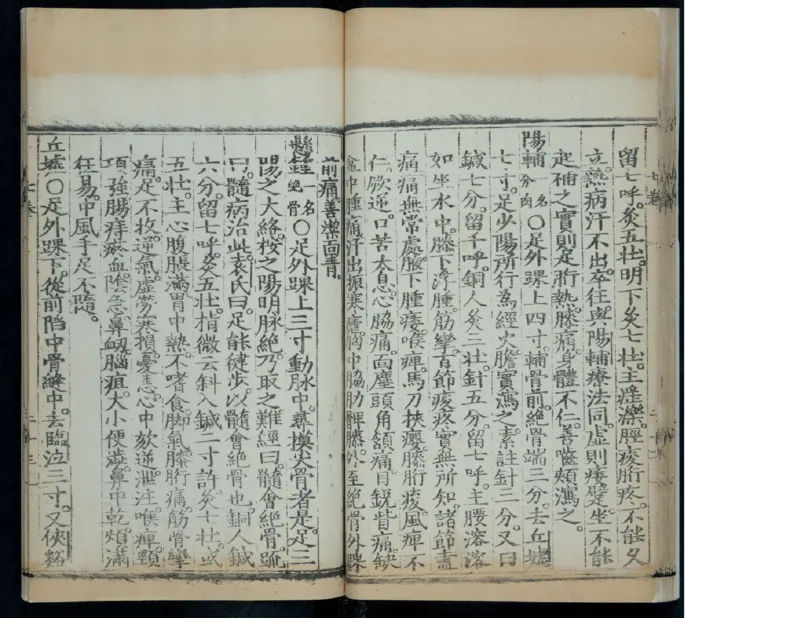 留七呼。灸五壯。明下灸七壯。主淫濼。脛痠胻疼。不能久
立。熱病汗不出。卒往與陽輔療法同。虛則痿躄。坐不能
起。補之。實則足胻熱。膝痛。身體不仁。善嚙頰。瀉之。
陽輔 一名分肉 〇足外踝上四寸。輔骨前。絕骨端三分。去丘墟
七寸。足少陽所行爲經火。膽實瀉之。素註針三分。又曰
鍼七分。留十呼。銅人灸三壯。針五分。留七呼。主腰溶溶
如坐水中。膝下浮腫。筋攣。百節痠疼。實無所知。諸節盡
痛。痛無常處。腋下腫痿。喉痺。馬刀挾癭。膝胻痠。風痺不
仁。厥逆。口苦太息。心脇痛。面塵。頭角頷痛。目銳眥痛。缺
盆中腫痛。汗出振寒。瘧。胸中脇肋髀膝外至絕骨外踝
前痛。善潔面青。
懸鐘 一名絕骨 〇足外踝上三寸動脉中。尋摸尖骨者是。足三
陽之大絡。按之陽明脉絕。乃取之。難經曰。髓會絕骨。疏
曰。髓病治此。袁氏曰。足能徒步。以髓會絕骨也。銅人鍼
六分。留七呼。灸五壯。指微云。斜入鍼二寸許。灸七壯。或
五壯。主心腹脹滿。胃中熱。不嗜食。脚氣。膝胻痛。筋骨攣
痛。足不收。逆氣。虛勞寒損。憂恚。心中欬逆。泄注。喉痺。頸
項強。腸痔瘀血。陰急。鼻衂。腦疽。大小便澁。鼻中乾。煩滿
狂易。中風手足不隨。
丘墟〇足外踝下。從前陷中骨縫中。去臨泣三寸。又俠谿
七卷